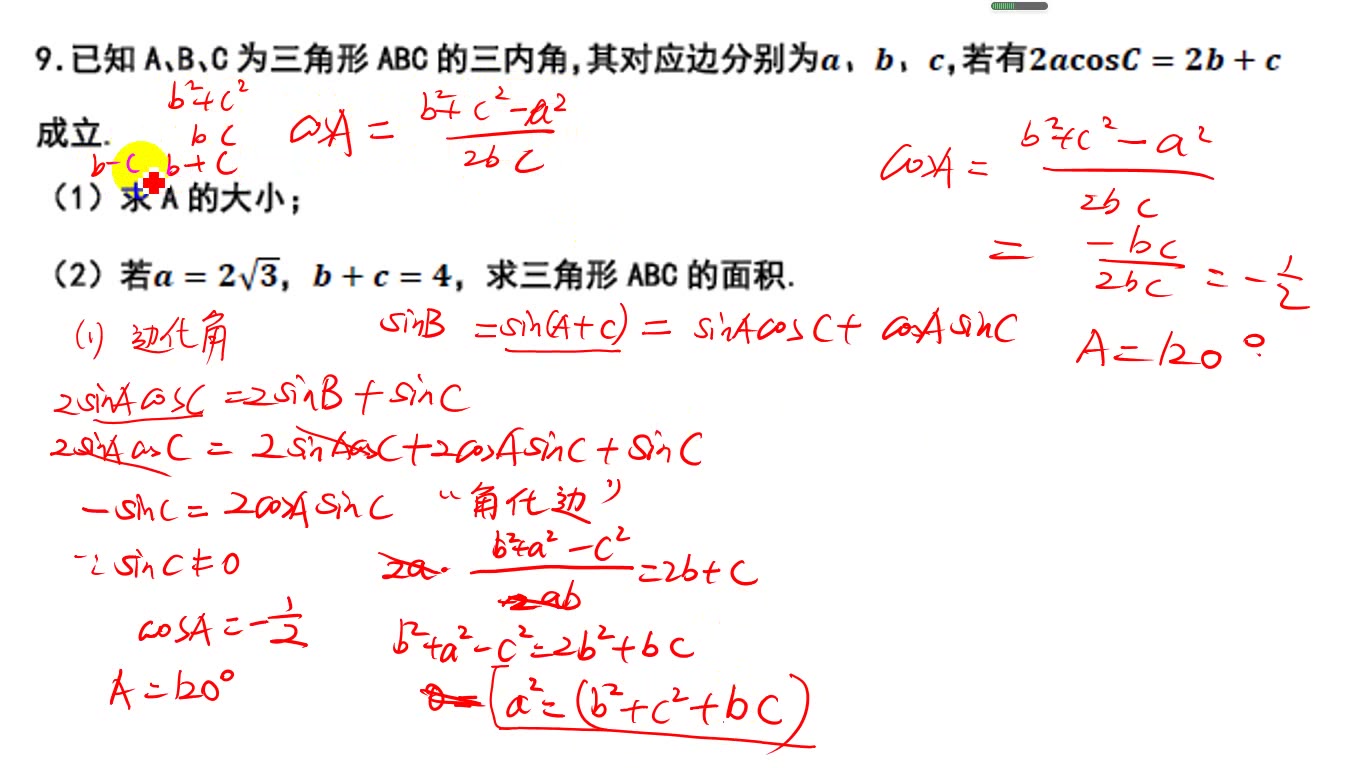 9.已知 A、B、C 为三角形 ABC 的三内角,其对应边分别为a、b、c,若有2acosC = 2b + c
成立.
b²+c²
bc
b-c b+c
cosA = (b²+c²-a²)/(2bc)
(1)求 A 的大小;
(2)若a = 2√3, b + c = 4, 求三角形 ABC 的面积.
cosA = (b²+c²-a²)/(2bc)
= (-bc)/(2bc) = -1/2
A=120°
(1) 边化角
sinB = sin(A+C) = sinAcosC + cosAsinC
2sinAcosC = 2sinB + sinC
2sinAcosC = 2sinAcosC + 2cosAsinC + sinC
-sinC = 2cosAsinC
∵ sinC ≠ 0
cosA = -1/2
A = 120°
“角化边”
2a · (b²+a²-c²)/(2ab) = 2b+c
b²+a²-c²=2b²+bc
a²=(b²+c²+bc)